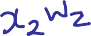 x₂w₂